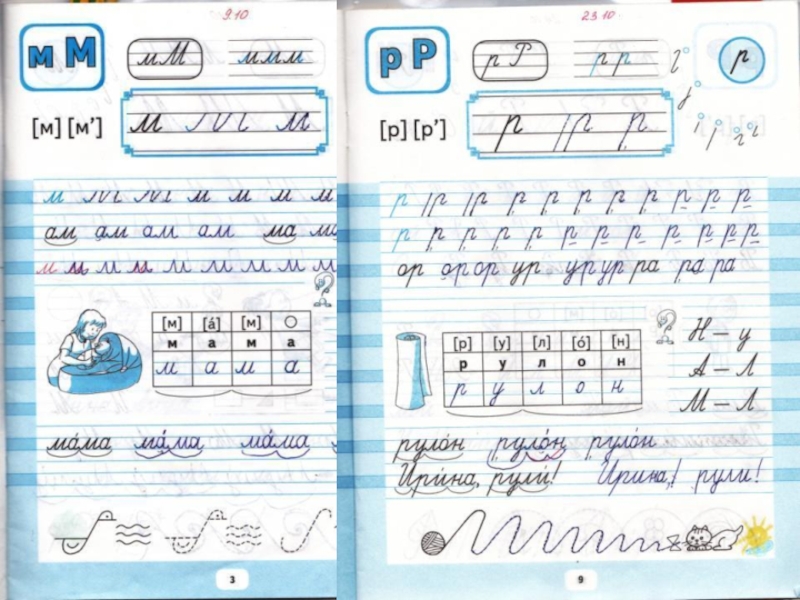 9.10
м М
м М
м м м
[м] [м']
м м м
м м м м м м
ам ам ам ам ма
м м м м м м м м м
[м] [а́] [м]
м а м а
м а м а
ма́ма ма́ма ма́ма
3
23.10
р Р
р Р
р р
р
[р] [р']
р р р
р р р р р р р р р р
р р р р р р р р р р р
ор ор ор ур ур ур ра ра ра
[р] [у] [л] [о́] [н]
р у л о н
р у л о н
Н – у
А – Л
М – Л
руло́н руло́н руло́н
Ири́на, рули́! Ирина, рули!
9